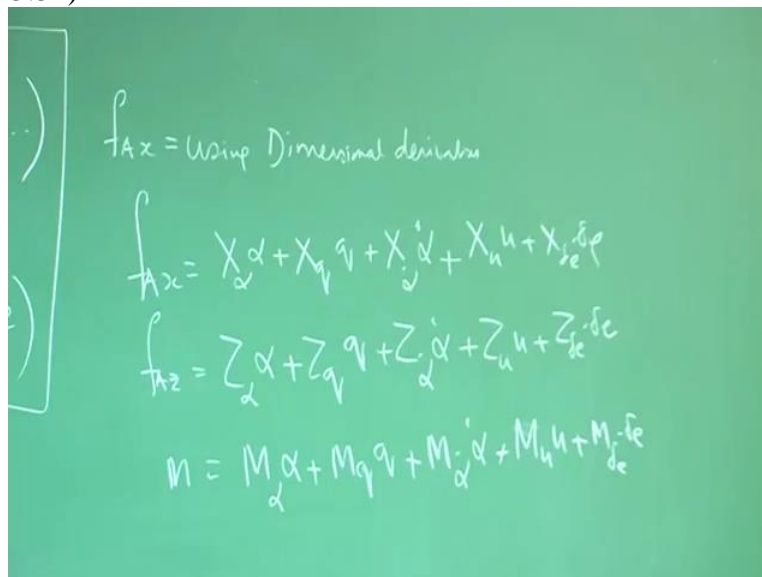 f_{Ax} = using Dimensional derivatives
f_{Ax} = X_α α + X_q q + X_{α̇} α̇ + X_u u + X_{δe}·δe
f_{Az} = Z_α α + Z_q q + Z_{α̇} α̇ + Z_u u + Z_{δe}·δe
m = M_α α + M_q q + M_{α̇} α̇ + M_u u + M_{δe}·δe